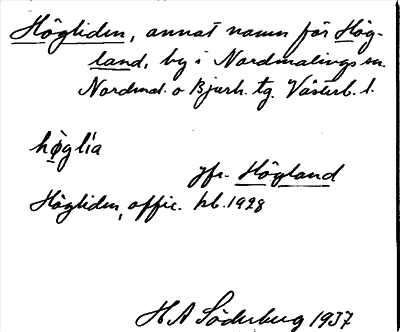 Högliden, annat namn för Hög-
land, by i Nordmalings sn.
Nordmal. o Bjurh. tg. Västerb. l.
hø̀glía
jfr. Högland
Högliden, offic. hb. 1928
H A Söderberg 1937